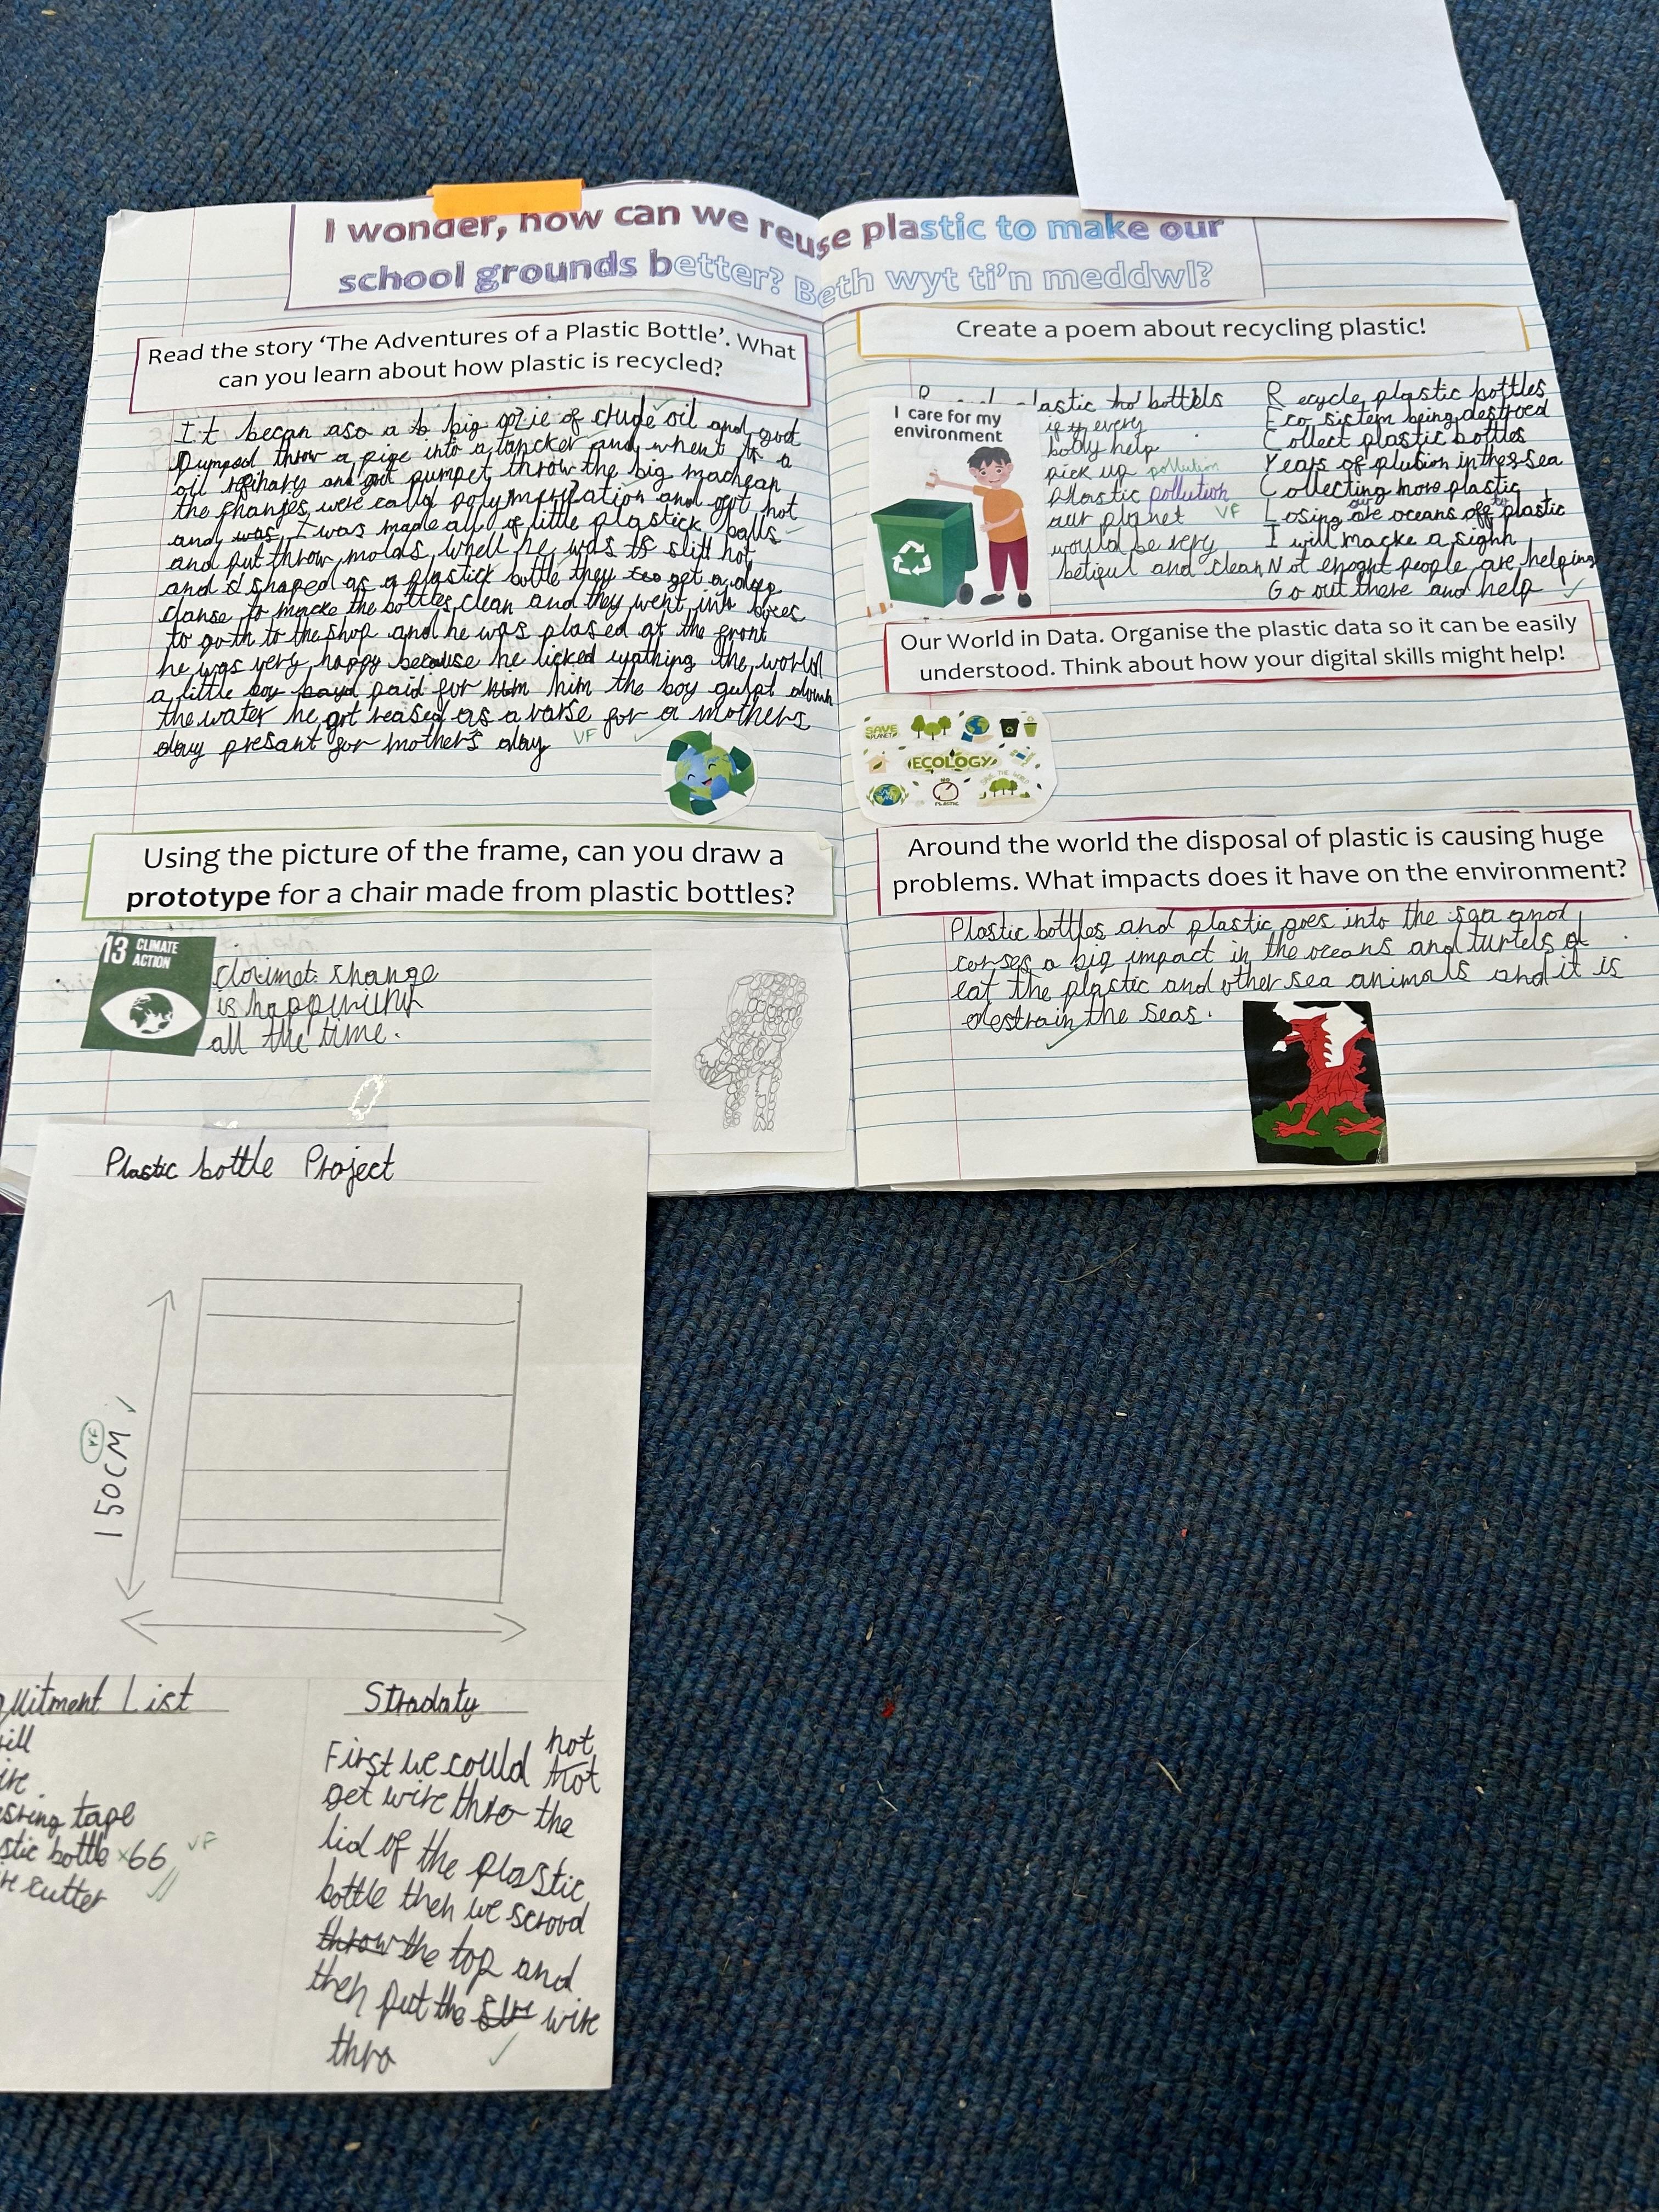 I wonder, how can we reuse plastic to make our
school grounds better? Beth wyt ti'n meddwl?
Read the story 'The Adventures of a Plastic Bottle'. What
can you learn about how plastic is recycled?
It began a big of crude oil and got
pumped throw a pipe into a tancker and when to a
oil refinary and got pumpet throw the big machean
the changes were calld and got hot
and was I was made all of little plastick balls
and put throw molds whell he was is still hot
and is shaped as a plastick bottle they too get a deep
clanse to macke the bottles clean and they went into boxes
to go to the shop and he was plased at the front
he was very happy because he licked the world
a little boy paid for him the boy gulpt down
the water he got reased as a varse for a mothers
day presant for mothers day VF
Using the picture of the frame, can you draw a
prototype for a chair made from plastic bottles?
13 CLIMATE
ACTION
climet shange
is happening
all the time.
Create a poem about recycling plastic!
I care for my
environment
plastic bottels
if every
body help
pick up pollution
Plastic pollution
our planet VF
would be very
betiful and clean
Recycle plastic bottles
Eco sistem being destroed
Collect plastic bottles
Years of plution in the sea
Collecting more plastic
Losing our oceans to plastic
I will macke a sighn
Not enoght people are helping
Go out there and help
Our World in Data. Organise the plastic data so it can be easily
understood. Think about how your digital skills might help!
SAVE
PLANET
ECOLOGY
SAVE THE WORLD
NO
PLASTIC
Around the world the disposal of plastic is causing huge
problems. What impacts does it have on the environment?
Plastic bottles and plastic goes into the sea and
corses a big impact in the oceans and turtels
eat the plastic and other sea animals and it is
destrain the seas.
Plastic bottle Project
150CM
VF
uitment List
ill
ire
suring tape
stic bottle ×66 VF
re cutter
Stradaty
First we could not
not
get wire thro the
lid of the plastic
bottle then we scrood
throw the top and
then put the wire
thro